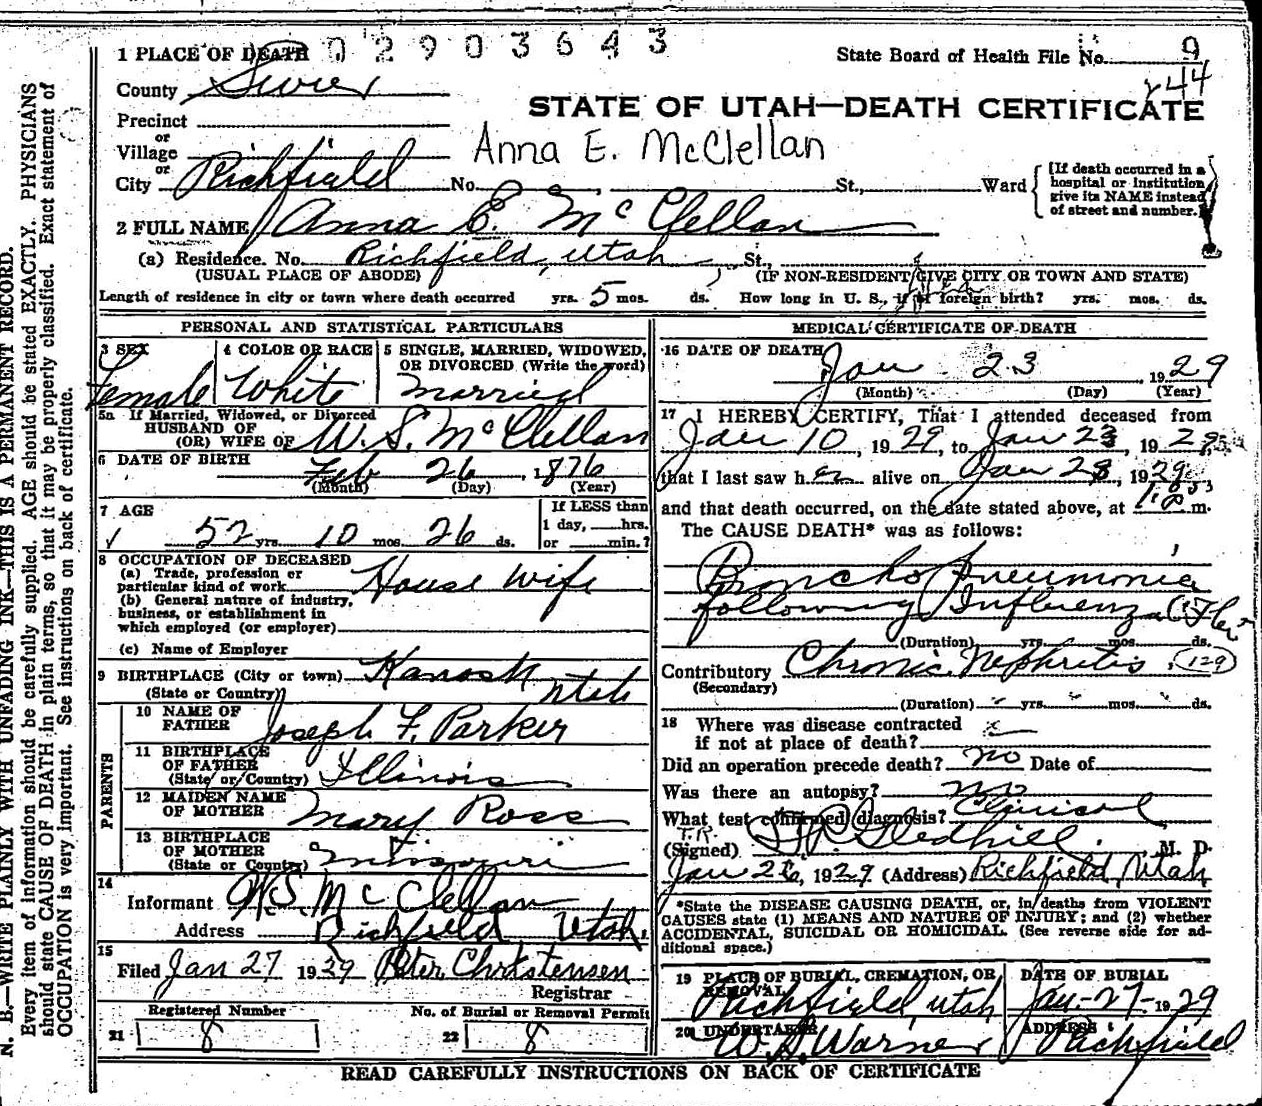 N. B.—WRITE PLAINLY WITH UNFADING INK—THIS IS A PERMANENT RECORD.
Every item of information should be carefully supplied. AGE should be stated EXACTLY. PHYSICIANS
should state CAUSE OF DEATH in plain terms, so that it may be properly classified. Exact statement of
OCCUPATION is very important. See instructions on back of certificate.
1 PLACE OF DEATH 02903643
State Board of Health File No. 9
244
County Sevier
STATE OF UTAH—DEATH CERTIFICATE
Precinct
or
Village
Anna E. McClellan
or
City Richfield No. St., Ward
[If death occurred in a
hospital or institution
give its NAME instead
of street and number.]
2 FULL NAME Anna E. McClellan
(a) Residence. No. Richfield, Utah St.,
(USUAL PLACE OF ABODE) (IF NON-RESIDENT GIVE CITY OR TOWN AND STATE)
Length of residence in city or town where death occurred yrs. 5 mos. ds. How long in U. S., if of foreign birth? yrs. mos. ds.
PERSONAL AND STATISTICAL PARTICULARS
3 SEX
Female
4 COLOR OR RACE
White
5 SINGLE, MARRIED, WIDOWED,
OR DIVORCED (Write the word)
married
5a If Married, Widowed, or Divorced
HUSBAND OF
(OR) WIFE OF W. S. McClellan
6 DATE OF BIRTH Feb 26, 1876
(Month) (Day) (Year)
7 AGE
52 yrs. 10 mos. 26 ds.
If LESS than
1 day, hrs.
or min.?
8 OCCUPATION OF DECEASED
(a) Trade, profession or
particular kind of work House wife
(b) General nature of industry,
business, or establishment in
which employed (or employer)
(c) Name of Employer
9 BIRTHPLACE (City or town) Kanosh
(State or Country) Utah
PARENTS
10 NAME OF
FATHER Joseph F. Parker
11 BIRTHPLACE
OF FATHER
(State or Country) Illinois
12 MAIDEN NAME
OF MOTHER Mary Ross
13 BIRTHPLACE
OF MOTHER
(State or Country) Missouri
14
Informant W. S. McClellan
Address Richfield Utah.
15
Filed Jan 27 1929 Peter Christensen
Registrar
Registered Number
21 8
No. of Burial or Removal Permit
22 8
MEDICAL CERTIFICATE OF DEATH
16 DATE OF DEATH
Jan 23, 1929
(Month) (Day) (Year)
17 I HEREBY CERTIFY, That I attended deceased from
Jan 10, 1929, to Jan 23, 1929,
that I last saw her alive on Jan 23, 1929
and that death occurred, on the date stated above, at m.
The CAUSE DEATH* was as follows:
Broncho Pneumonia
following Influenza
(Duration) yrs. mos. ds.
Contributory Chronic Nephritis (129)
(Secondary)
(Duration) yrs. mos. ds.
18 Where was disease contracted
if not at place of death?
Did an operation precede death? no Date of
Was there an autopsy? no
What test confirmed diagnosis? Clinical
T.R.
(Signed) T R Gledhill, M. D.
Jan 26, 1929 (Address) Richfield, Utah
*State the DISEASE CAUSING DEATH, or, in deaths from VIOLENT
CAUSES state (1) MEANS AND NATURE OF INJURY; and (2) whether
ACCIDENTAL, SUICIDAL OR HOMICIDAL. (See reverse side for ad-
ditional space.)
19 PLACE OF BURIAL, CREMATION, OR
REMOVAL
Richfield, Utah
DATE OF BURIAL
Jan-27-1929
20 UNDERTAKER
W S Warner
ADDRESS
Richfield
READ CAREFULLY INSTRUCTIONS ON BACK OF CERTIFICATE